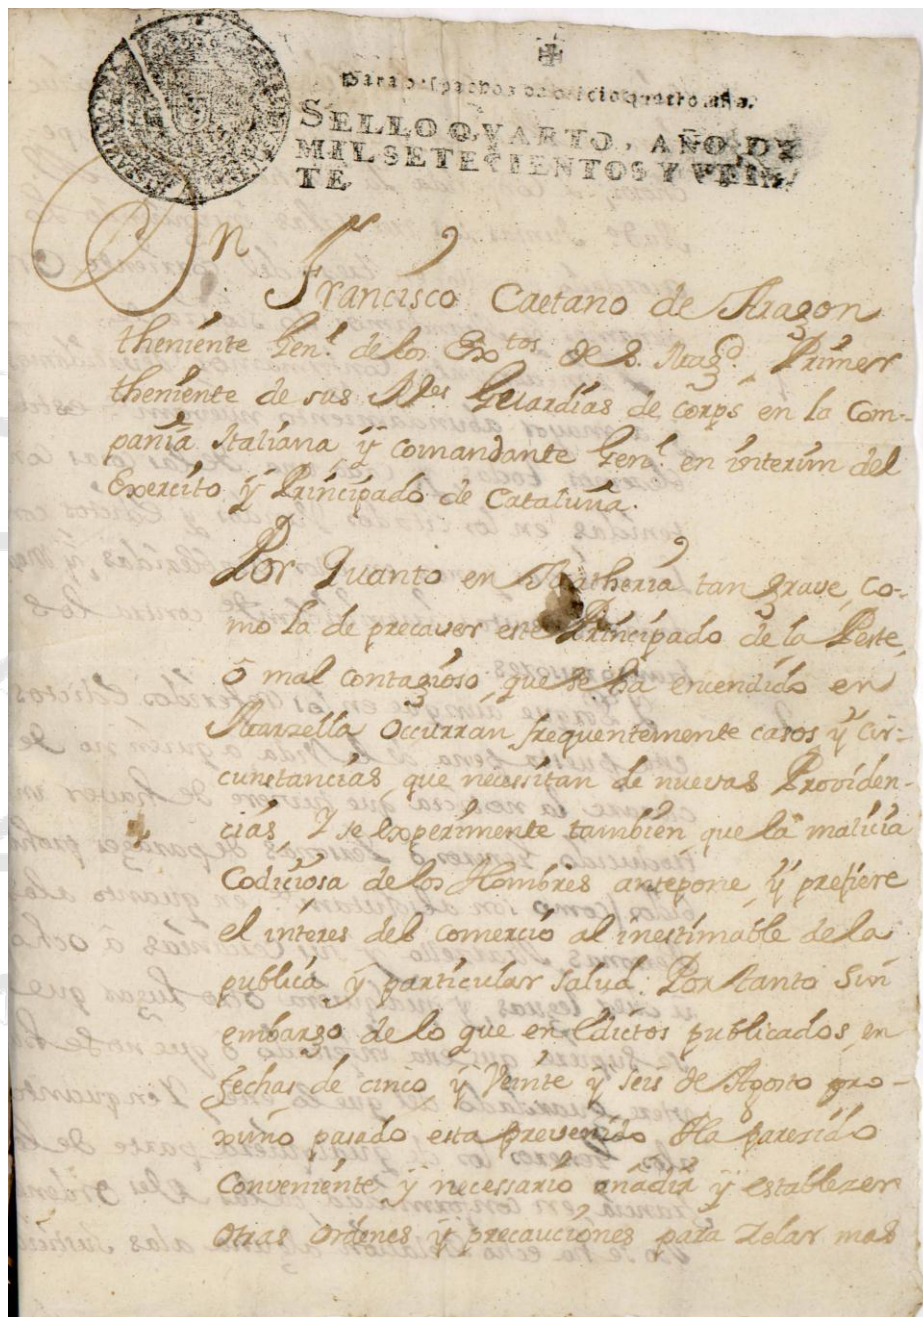 Para despachos de oficio quatro mrs.
SELLO QVARTO, AÑO DE
MIL SETECIENTOS Y VEIN-
TE
Dn
Francisco Caetano de Aragon
theniente Genl. de los Extos. de S. Magd. Primer
theniente de sus Rles Guardias de corps en la Com-
pañia Italiana y comandante Genl. en interim del
Exercito y Principado de Cataluña.
Por Quanto en Matheria tan grave, co-
mo la de precaver este Principado de la Peste,
ò mal contagioso, que se ha encendido en
Marzella Occurran frequentemente casos y Cir-
cunstancias que necessitan de nuevas Providen-
cias, Y se experimente tambien, que la malicia
Codiciosa de los Hombres antepone, y prefiere
el interes del comercio al inestimable de la
publica y particular Salud. Por tanto Sin
embargo de lo que en Edictos publicados en
fechas de cinco y Veinte y seis de Agosto pro-
ximo pasado esta prevenido Ha paresido
Conveniente y necessario añadir y establezer
otras ordenes y precauciones para zelar mas